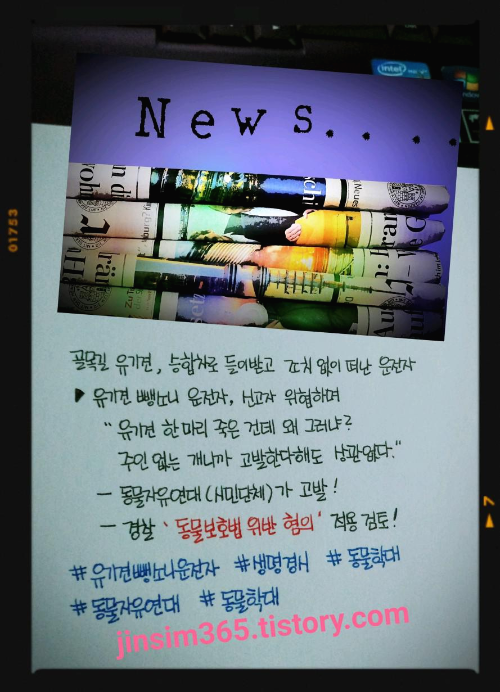 intel
News. . . .
골목길 유기견, 승합차로 들이받고 조치 없이 떠난 운전자
▶ 유기견 뺑소니 운전자, 신고자 위협하며
“ 유기견 한마리 죽은 건데 왜 그러냐?
주인 없는 개니까 고발한다해도 상관없다.”
— 동물자유연대(시민단체)가 고발!
— 경찰 '동물보호법 위반 혐의' 적용 검토!
#유기견뺑소니운전자 #생명경시 #동물학대
#동물자유연대 #동물학대
jinsim365.tistory.com
01753